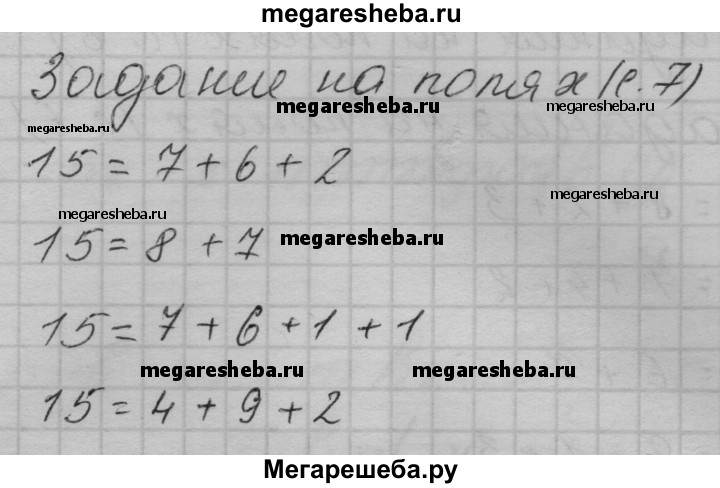 megaresheba.ru
Задание на полях (с. 7)
megaresheba.ru
megaresheba.ru
megaresheba.ru
15 = 7 + 6 + 2
megaresheba.ru
megaresheba.ru
15 = 8 + 7
megaresheba.ru
15 = 7 + 6 + 1 + 1
megaresheba.ru
megaresheba.ru
15 = 4 + 9 + 2
Мегарешеба.ру